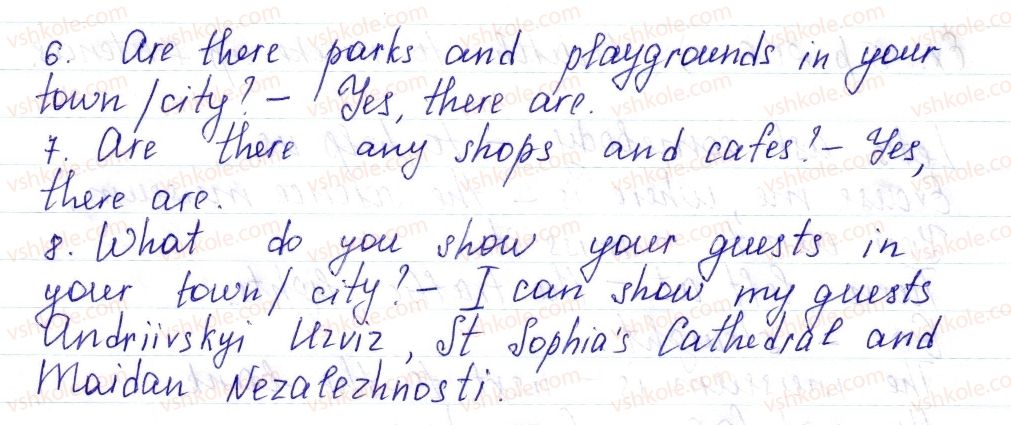 6. Are there parks and playgrounds in your
town/city? - Yes, there are.
7. Are there any shops and cafes? - Yes,
there are.
8. What do you show your guests in
your town/city? - I can show my guests
Andriivskyi Uzviz, St Sophia's Cathedral and
Maidan Nezalezhnosti.